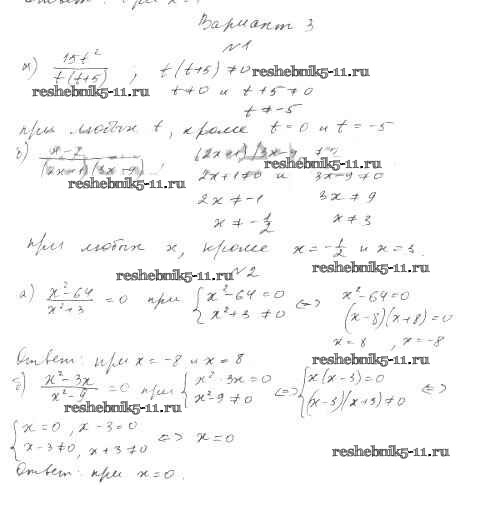 Вариант 3
№1
а) 15t² / t(t+5) ; t(t+5) ≠0 reshebnik5-11.ru
reshebnik5-11.ru t≠0 и t+5≠0
t≠-5
при любых t, кроме t=0 и t=-5
б) x-7 / (2x+1)(3x-9) ; (2x+1)(3x-9) ≠0
reshebnik5-11.ru
reshebnik5-11.ru 2x+1≠0 и 3x-9≠0
2x≠-1 3x≠9
x≠-1/2 x≠3
при любых x, кроме x=-1/2 и x=3.
reshebnik5-11.ru №2 reshebnik5-11.ru
а) x²-64 / x²+3 =0 при { x²-64=0 <=> x²-64=0
x²+3≠0 (x-8)(x+8)=0
x=8 , x=-8
Ответ: при x=-8 и x=8 reshebnik5-11.ru
б) x²-3x / x²-9 =0 при { x²-3x=0 <=> { x(x-3)=0 <=>
reshebnik5-11.ru x²-9≠0 (x-3)(x+3)≠0
{ x=0 , x-3=0
x-3≠0, x+3≠0 <=> x=0
reshebnik5-11.ru
Ответ: при x=0.